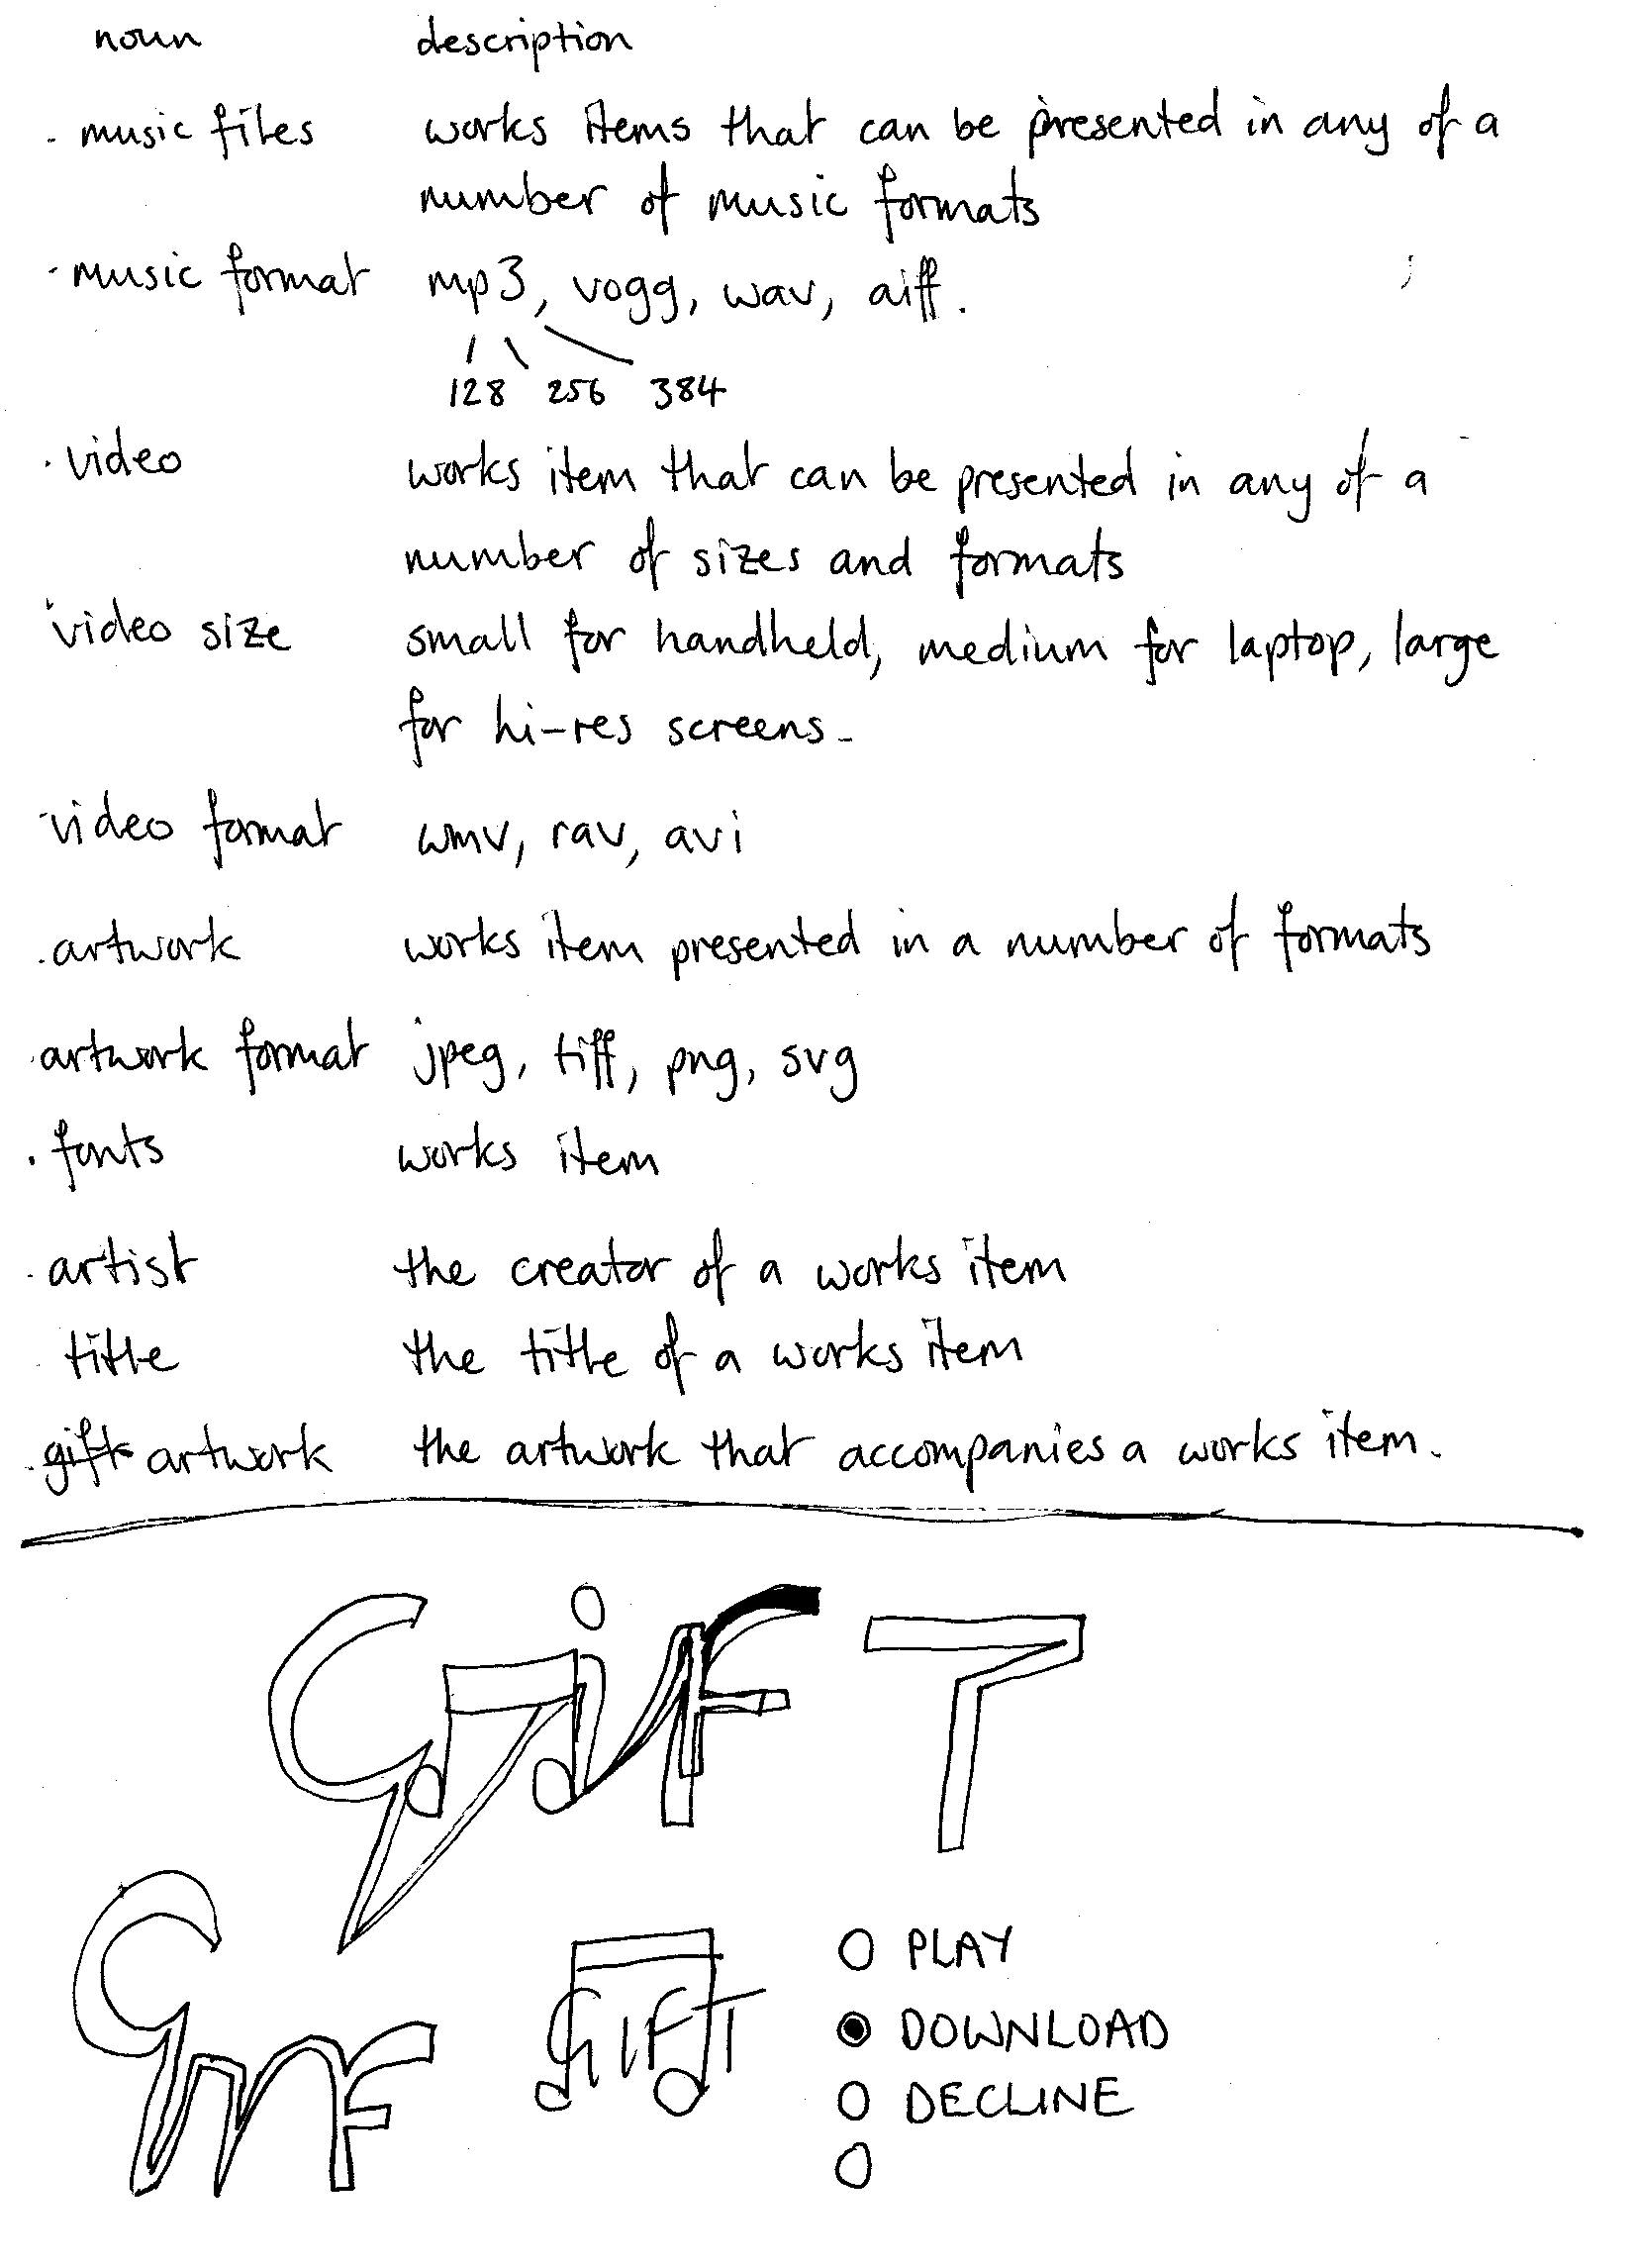 noun description
. music files works items that can be presented in any of a
number of music formats
. music format mp3, vogg, wav, aiff.
128 256 384
. video works item that can be presented in any of a
number of sizes and formats
. video size small for handheld, medium for laptop, large
for hi-res screens.
. video format wmv, rav, avi
. artwork works item presented in a number of formats
. artwork format jpeg, tiff, png, svg
. fonts works item
. artist the creator of a works item
. title the title of a works item
. gift artwork the artwork that accompanies a works item.
GifT
GIFT
PLAY
DOWNLOAD
DECLINE